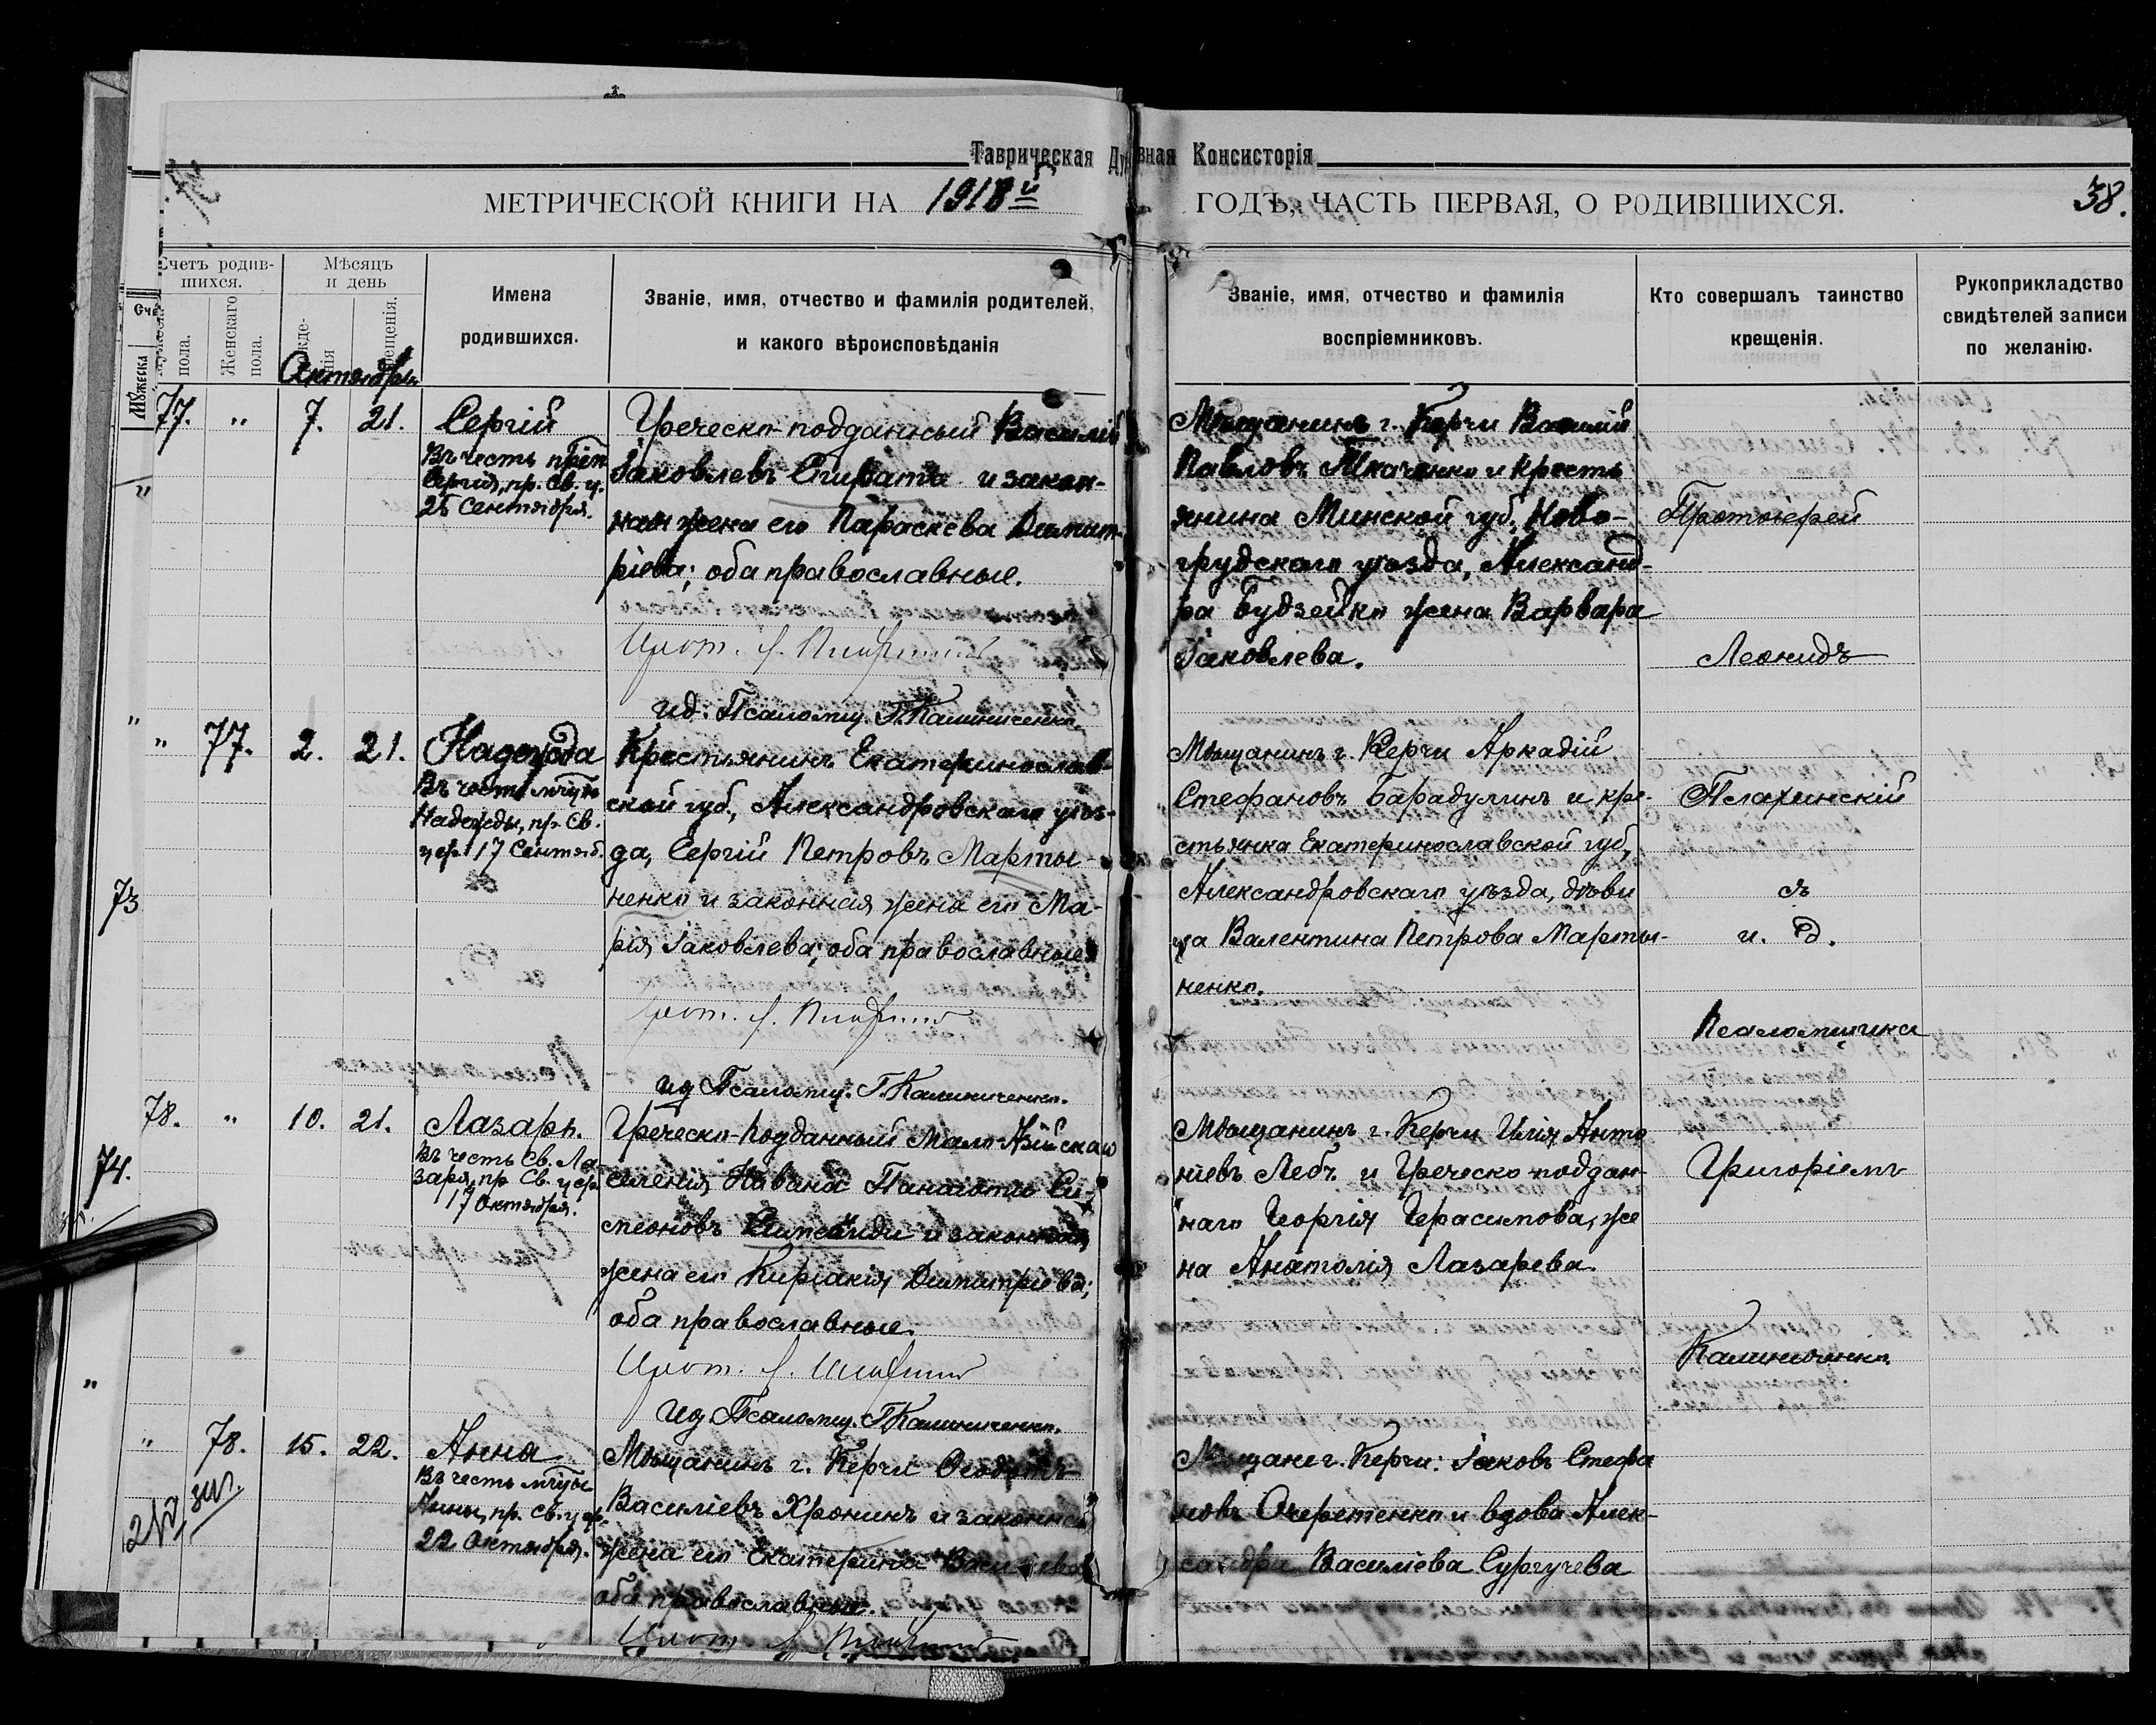 Таврическая Ду
вная Консисторія
МЕТРИЧЕСКОЙ КНИГИ НА 1918й
ГОДЪ, ЧАСТЬ ПЕРВАЯ, О РОДИВШИХСЯ.
38.
Счетъ родив-
шихся.
пола.
Женскаго
пола.
Мѣсяцъ
и день
Имена
родившихся.
Званіе, имя, отчество и фамилія родителей,
и какого вѣроисповѣданія
Званіе, имя, отчество и фамилія
воспріемниковъ.
Кто совершалъ таинство
крещенія.
Рукоприкладство
свидѣтелей записи
по желанію.
Мужеска
Октября
77. " 7. 21. Сергій
Въ честь преп
Сергія, пр. Св. ц.
25 Сентября.
Греческо-подданный Василій
Іаковлевъ и закон-
ная жена его Параскева Димит-
ріева; оба православные.
Прот. Л.
ид. Псаломщ. Г. Калиниченко.
Мѣщанинъ г. Керчи Василій
Павловъ Ткаченко и кресть
янина Минской губ. Ново-
грудскаго уѣзда, Александ-
ра Будзейко жена Варвара
Іаковлева.
Протоіерей
Леонидъ
" 77. 2. 21. Надежда
Въ честь мчцы
Надежды, пр. Св.
цер. 17 Сентяб.
Крестьянинъ Екатеринослав-
ской губ., Александровскаго уѣз-
да, Сергій Петровъ Марты-
ненко и законная жена его Ма-
рія Іаковлева; оба православные
Прот. Л.
ид Псаломщ. Г. Калиниченко.
Мѣщанинъ г. Керчи Аркадій
Стефановъ Барадулинъ и кре-
стьянка Екатеринославской губ,
Александровскаго уѣзда, дѣви
ца Валентина Петрова Марты-
ненко.
съ
и. д.
Псаломщика
73
78. " 10. 21. Лазарь.
Въ честь Св. Ла-
заря, пр. Св. цер
17 Октября.
Греческо-подданный Мало-Азійскаго
селенія Панагіотъ Си-
меоновъ и законная
жена его Киріакія Димитріева;
оба православные.
Прот. Л.
Ид. Псаломщ. Г. Калиниченко.
Мѣщанинъ г. Керчи Илія Анто
ніевъ Лебъ и Греческо-поддан-
наго Георгія Герасимова, же
на Анатолія Лазарева.
Григоріемъ
Калиниченко
74.
" 78. 15. 22. Анна
Въ честь мчцы
Анны, пр. Св. цер.
22 Октября.
Мѣщанинъ г. Керчи Ѳеодотъ
Василіевъ Хронинъ и законная
жена его Екатерина Василіева
оба православные.
Прот Л.
Мѣщане г. Керчи: Іаковъ Стефа
новъ Очеретенко и вдова Алек-
сандра Василіева Сургучева